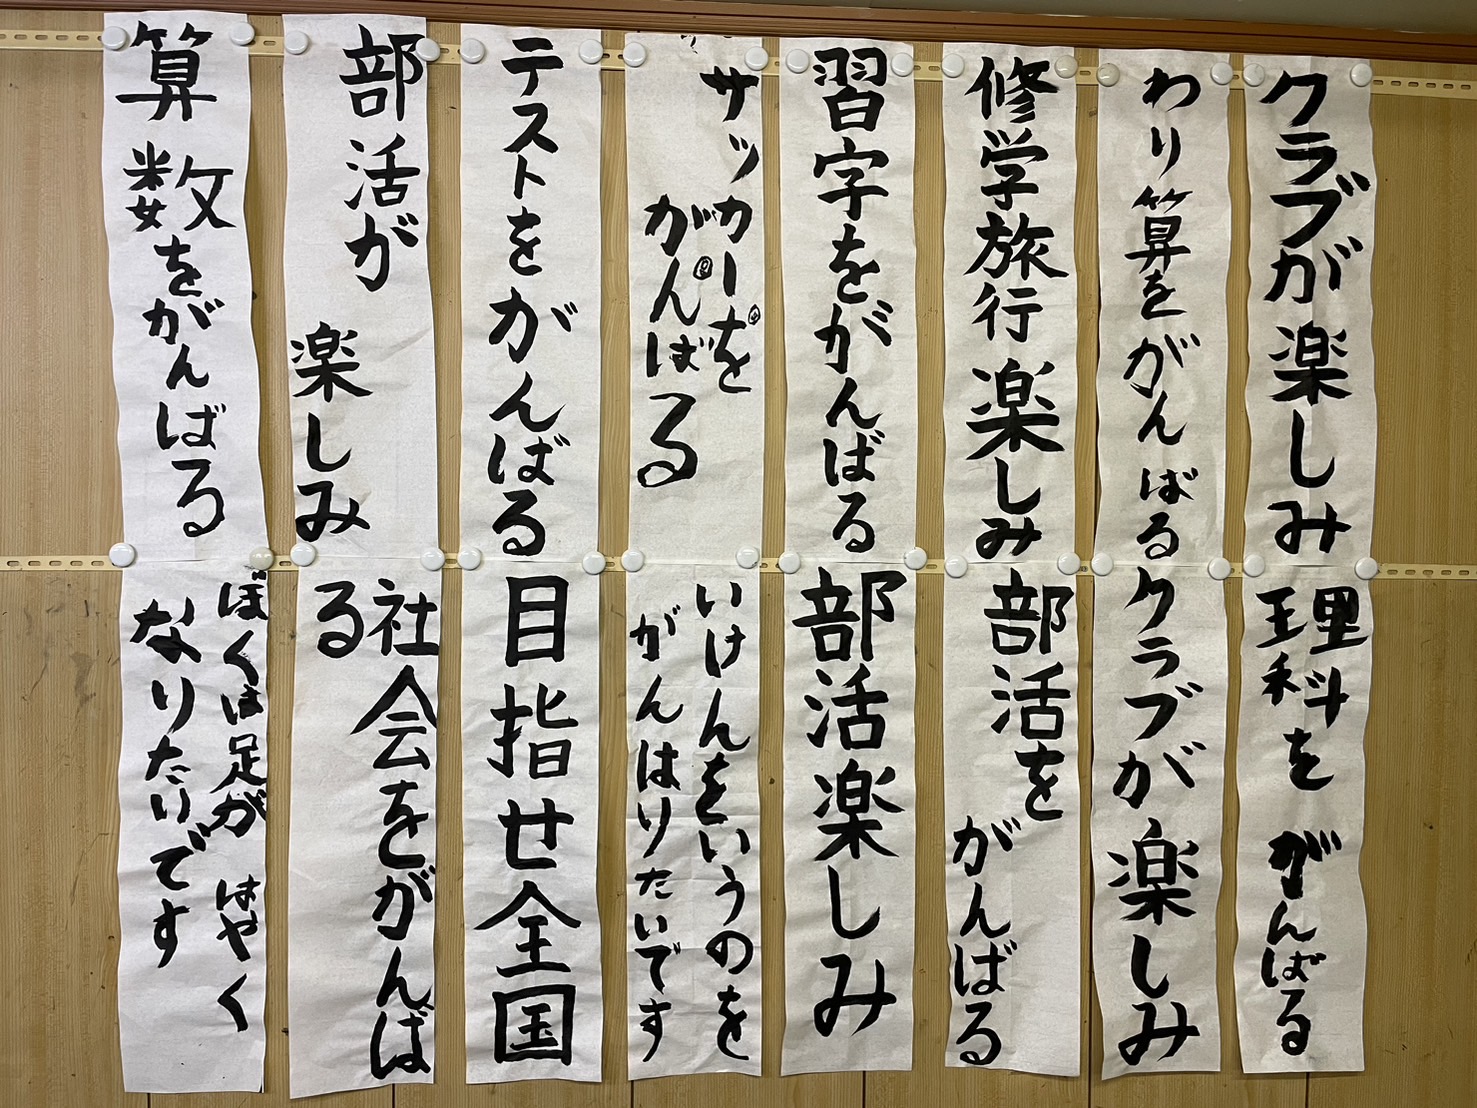 クラブが楽しみ
わり算をがんばる
修学旅行楽しみ
習字をがんばる
サッカーを
がんばる
テストをがんばる
部活が
楽しみ
算数をがんばる
理科をがんばる
クラブが楽しみ
部活を
がんばる
部活楽しみ
いけんをいうのを
がんはりたいです
目指せ全国
社会をがんば
る
ぼくは足がはやく
なりたいです